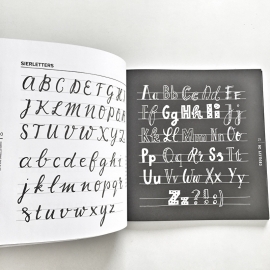 SIERLETTERS
A B C D E F G H I
J K L M N O P Q R
S T U V W X Y Z
a b c d e f g h i
j k l m n o p q r
s t u v w x y z
Aa Bb Cc Dd Ee
Ff Gg Hh Ii
Jj Kk Ll Mm Nn Oo
Pp Qq Rr Ss Tt
Uu Vv Ww Xx Yy
Zz ? ! ; )